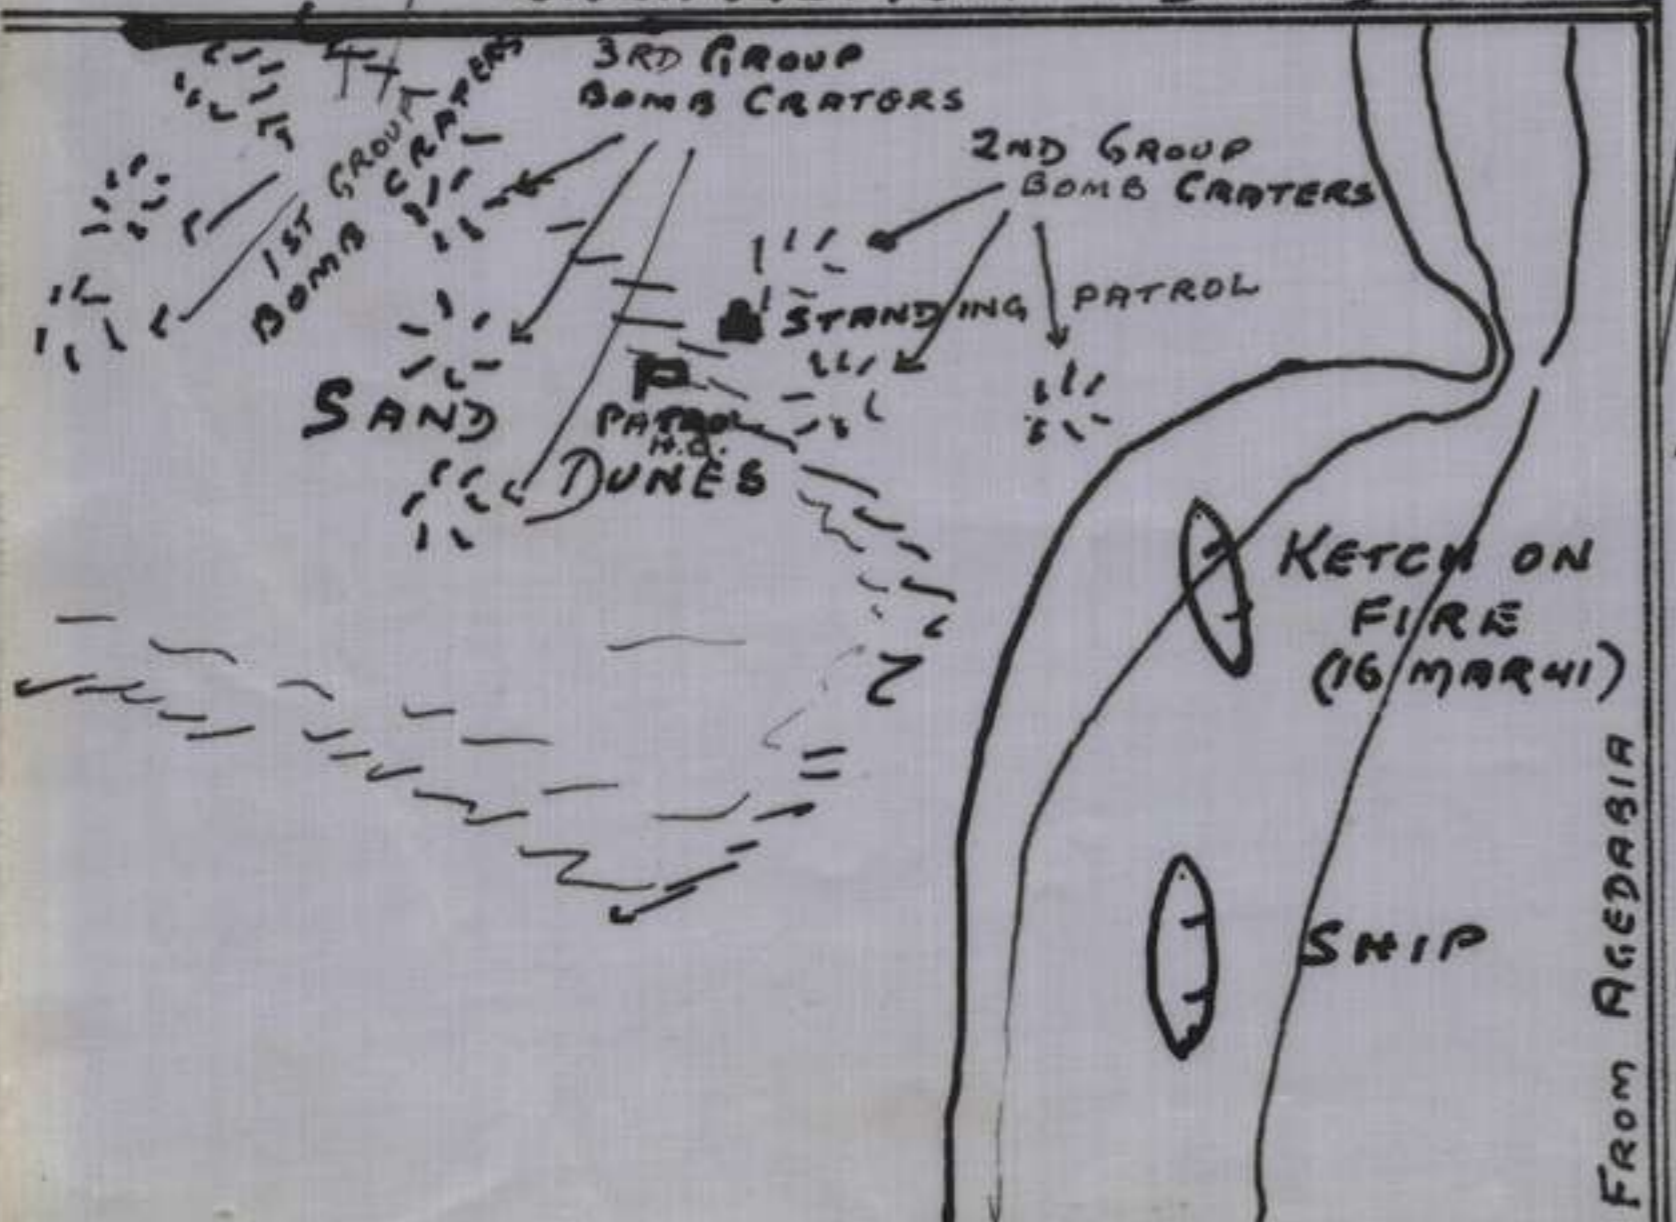 3RD GROUP
BOMB CRATERS
1ST GROUP
BOMB CRATERS
2ND GROUP
BOMB CRATERS
STANDING PATROL
SAND
PATROL
H.Q.
DUNES
KETCH ON
FIRE
(16 MAR 41)
SHIP
FROM AGEDABIA